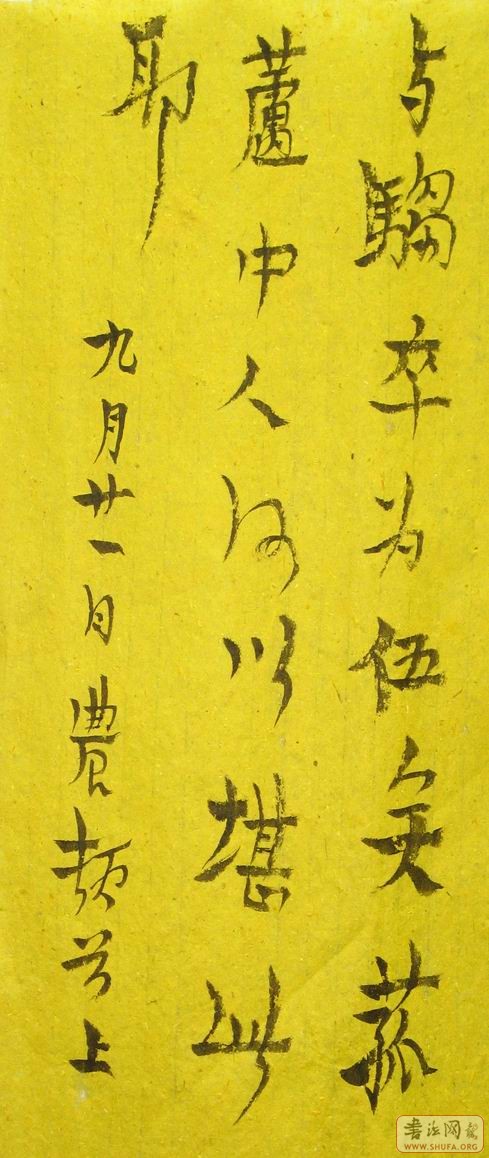 与騶卒为伍矣菰
蘆中人何以堪此
耶
九月廿一日農頓首上
书法网
WWW.SHUFA.ORG